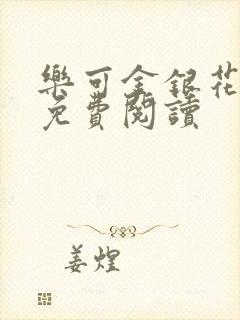 樂可金銀花
免費閱讀
姜煌